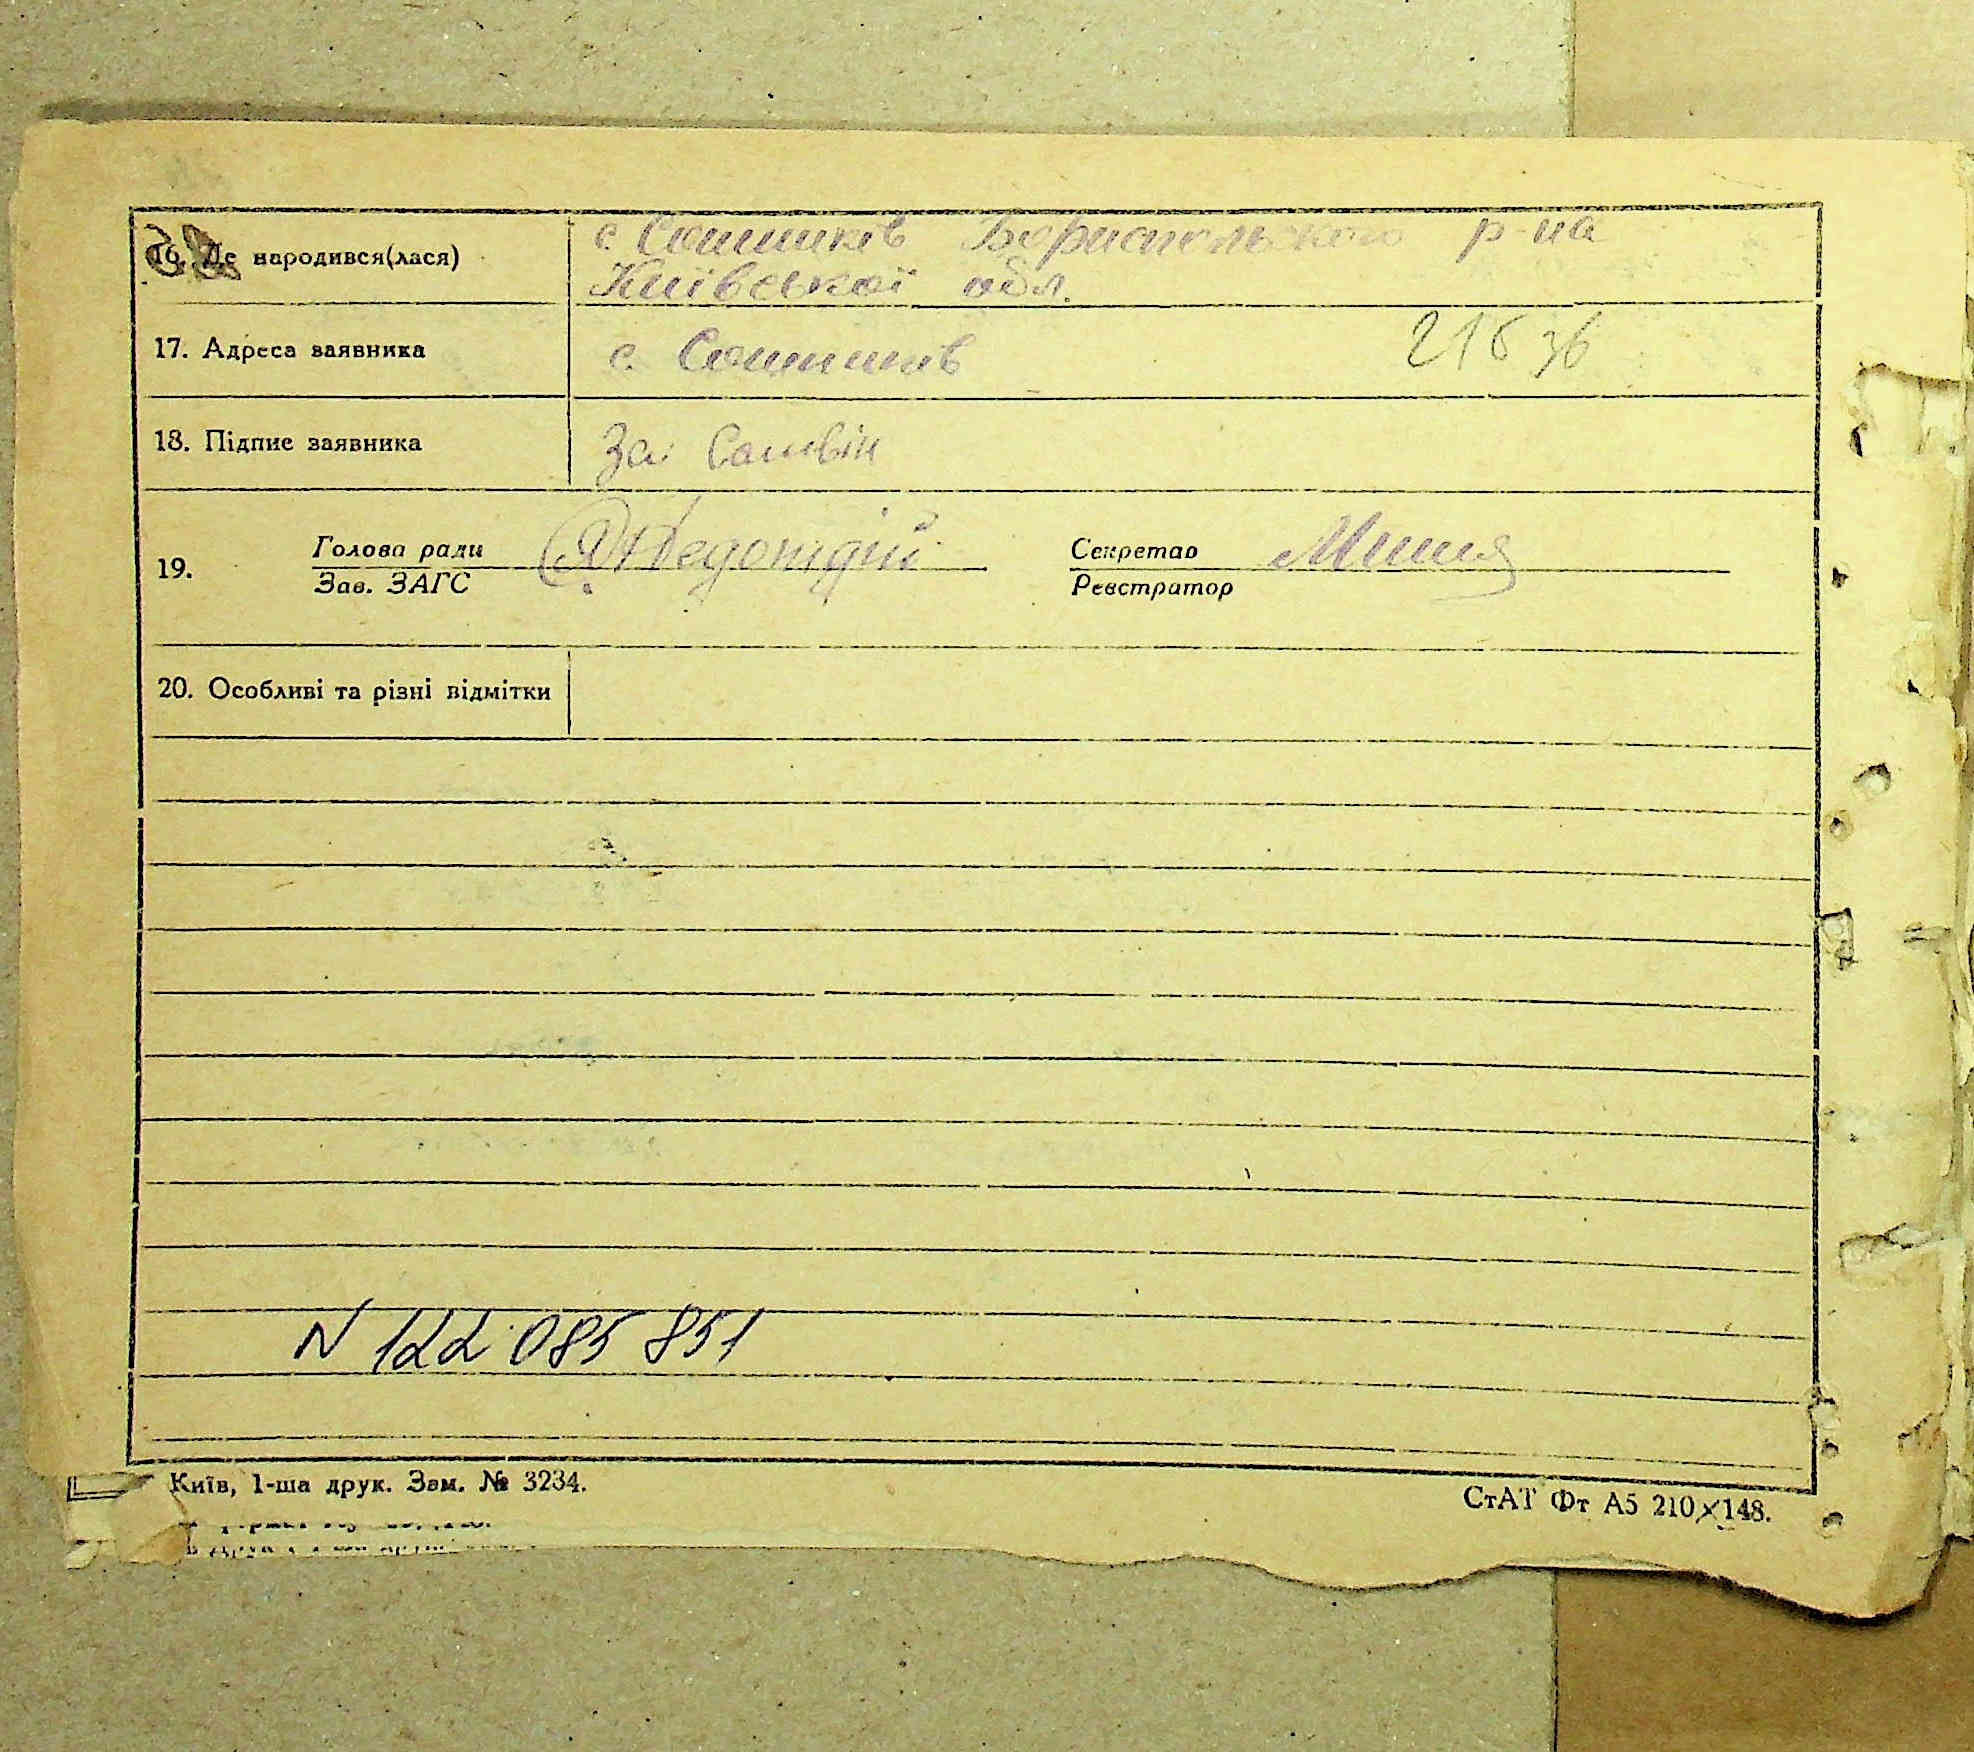 16. Де народився(лася) с Сошників Бориспольского р-на
Київської обл.
17. Адреса заявника с. Сошників
18. Підпис заявника За
19. Голова ради Секретар
Зав. ЗАГС Реєстратор
20. Особливі та різні відмітки
N 122 085 851
Київ, 1-ша друк. Зам. № 3234.
СтАТ Фт А5 210×148.